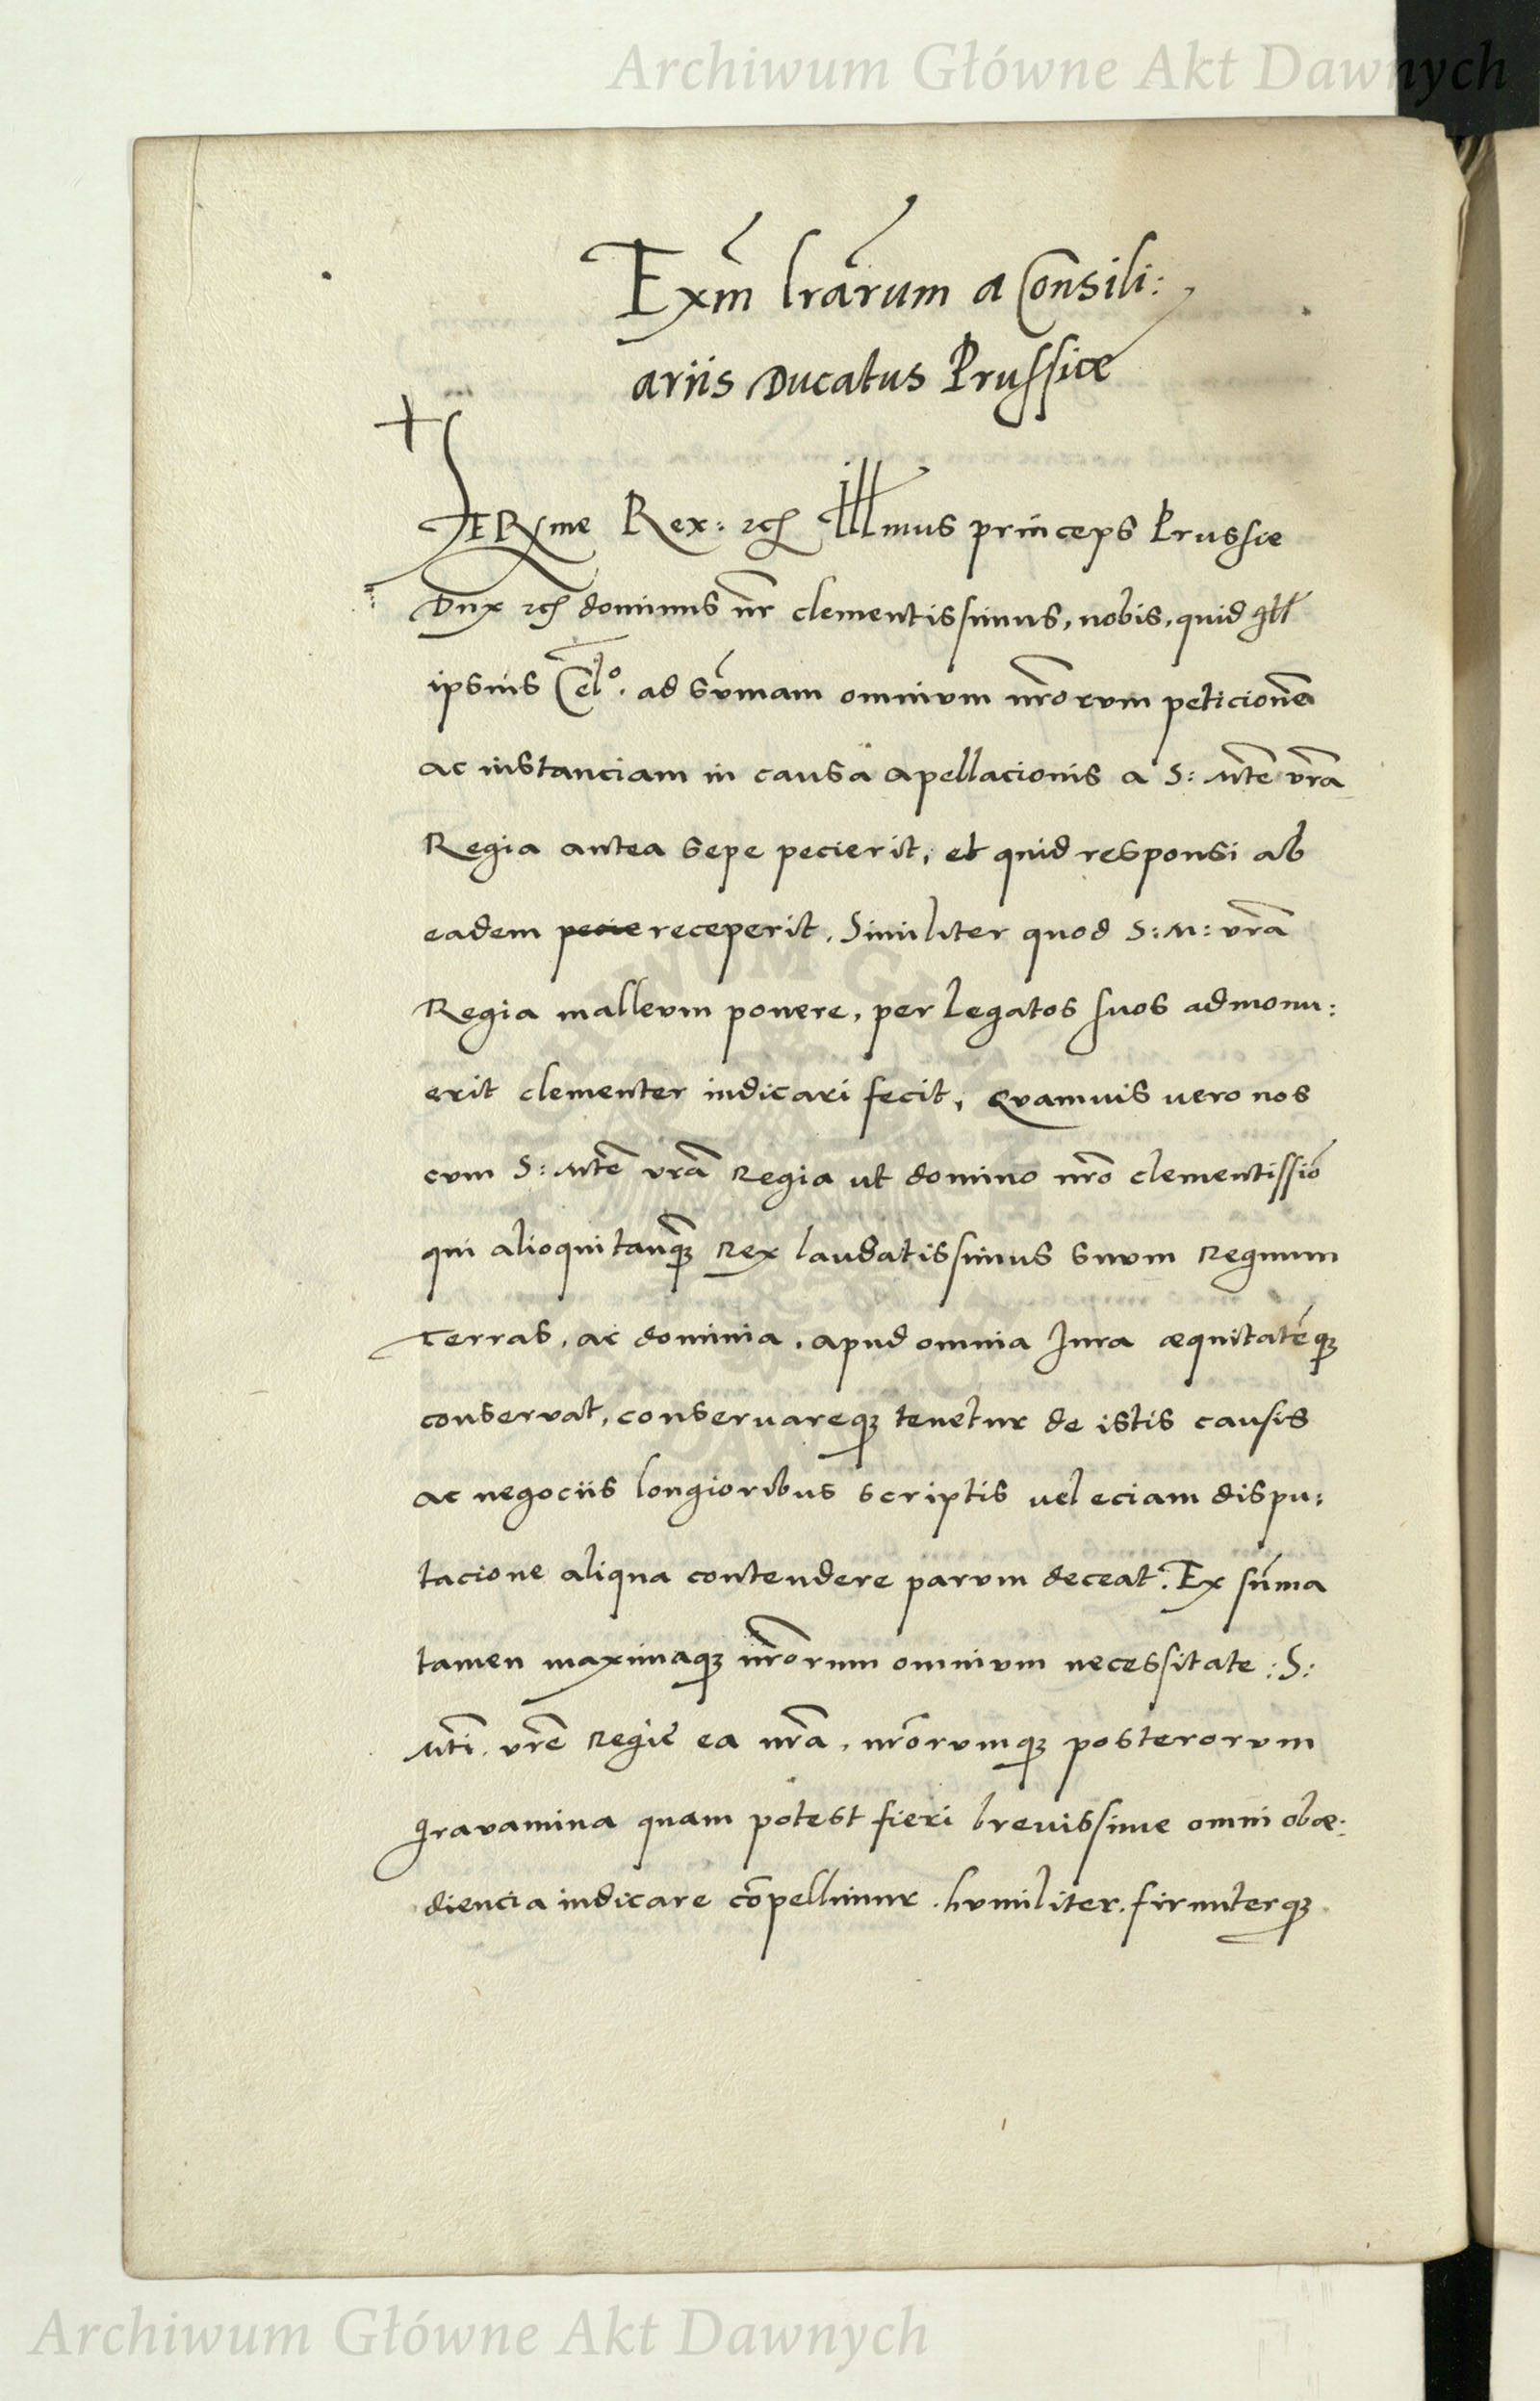 Archiwum Główne Akt Dawnych
Exm̄ lrārum a Consili:
ariis Ducatus Prussiæ
SERme Rex: etc Illmus princeps Prussiæ
Dux etc dominus nr̄ clementissimus, nobis, quid Ill
ipsius Celo. ad sūmam omnium nr̄orum peticionem
ac instanciam in causa apellacionis a S: Mte vrā
Regia antea sepe pecierit, et quid responsi ab
eadem pecie receperit. Similiter quod S: M: vrā
Regia malleum ponere, per Legatos suos admonu:
erit clementer indicari fecit, Quamuis vero nos
cum S: Mte vrā Regia ut domino nr̄o clementissio
qui alioqui tanq̄ Rex laudatissimus suum Regnum
Terras, ac dominia, apud omnia Iura æquitatēq;
conservat, conservareq; tenetur de istis causis
ac negociis longioribus scriptis vel eciam dispu:
tacione aliqua contendere parum deceat. Ex sūma
tamen maximaq; nr̄orum omnium necessitate: S:
Mti. vrē Regiē ea nrā, nr̄orumq; posterorum
gravamina quam potest fieri brevissime omni obæ:
diencia indicare cōpellimur. humiliter. firmiterq;
Archiwum Główne Akt Dawnych